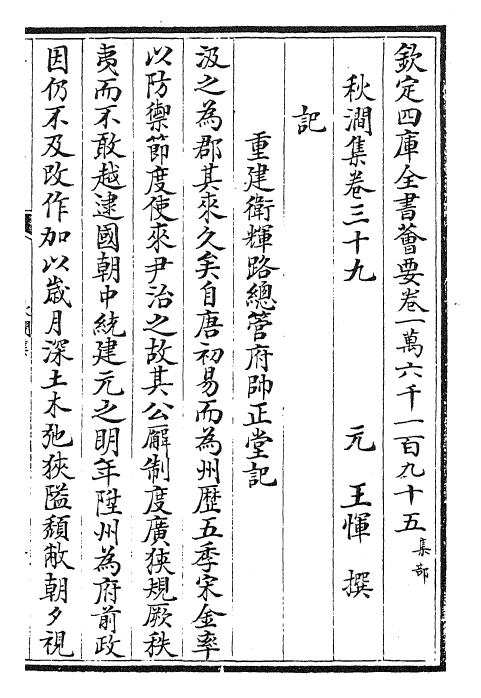 欽定四庫全書薈要卷一萬六千一百九十五集部
秋澗集卷三十九
元　王惲　撰
記
重建衛輝路總管府帥正堂記
汲之為郡其來久矣自唐初易而為州歷五季宋金率
以防禦節度使來尹治之故其公廨制度廣狹規厥秩
夷而不敢越逮國朝中統建元之明年陞州為府前政
因仍不及改作加以歲月深土木弛狹隘頹敝朝夕視